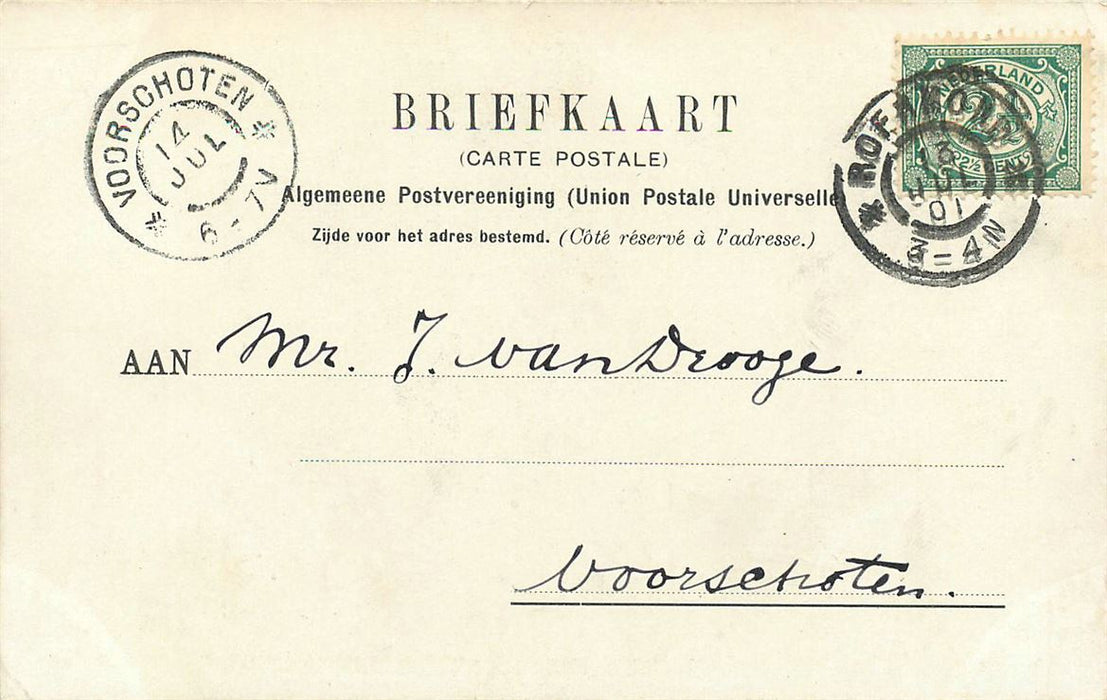 VOORSCHOTEN
14
JUL
6-7V
BRIEFKAART
(CARTE POSTALE)
Algemeene Postvereeniging (Union Postale Universelle
Zijde voor het adres bestemd. (Côté réservé à l'adresse.)
NEDERLAND
2½
13
JUL
01
3=4N
AAN Mr. J. van Drooge.
Voorschoten.